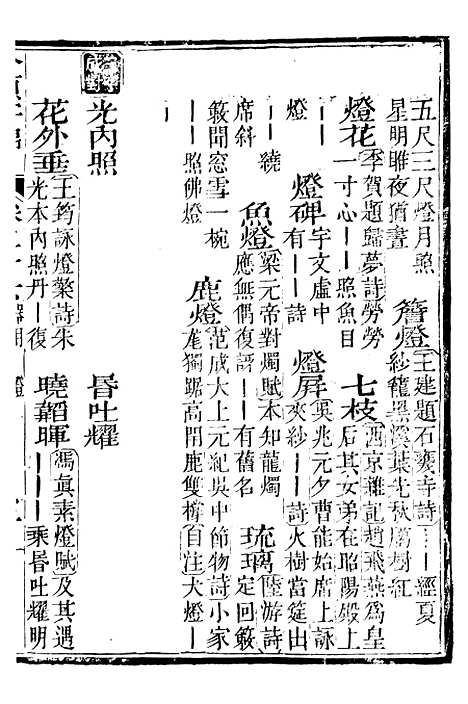 五尺三尺燈月照
星明睢夜猶晝
簷燈
王建題石甕寺詩｜｜經夏
紗籠黑溪葉先秋廟樹紅
燈花
李賀題歸夢詩勞勞
一寸心｜｜照魚目
七枝
西京雜記趙飛燕為皇
后其女弟在昭陽殿上
｜｜
燈
燈碑
宇文虛中
有｜｜詩
燈屏
吳兆元夕曹能始席上詠
夾紗｜｜詩火樹當筵出
｜繞
席斜
魚燈
梁元帝對燭賦本知龍燭
應無偶復語｜｜有舊名
琉璃
陸游詩
定回簌
簌聞窗雪一椀
｜｜照佛燈
鹿燈
范成大上元紀吳中節物詩小家
尨獨踞高閈鹿雙撐自注犬燈｜
光內照
昏吐耀
花外垂
王筠詠燈檠詩朱
光本內照丹｜｜復
曉韜暉
馮真素燈賦及其遇
｜｜｜｜乘昏吐耀明
燈